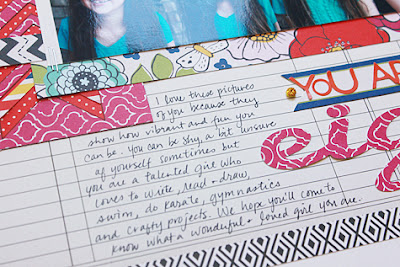 I love these pictures
of you because they
show how vibrant and fun you
can be. You can be shy, a bit unsure
of yourself sometimes but
you are a talented girl who
loves to write, read + draw,
swim, do karate, gymnastics
and crafty projects. We hope you'll come to
know what a wonderful + loved girl you are.
YOU AR
eig